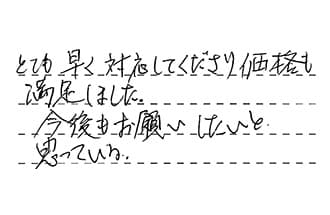 とても早く対応してくださり価格も
満足しました。
今後もお願いしたいと
思っている。